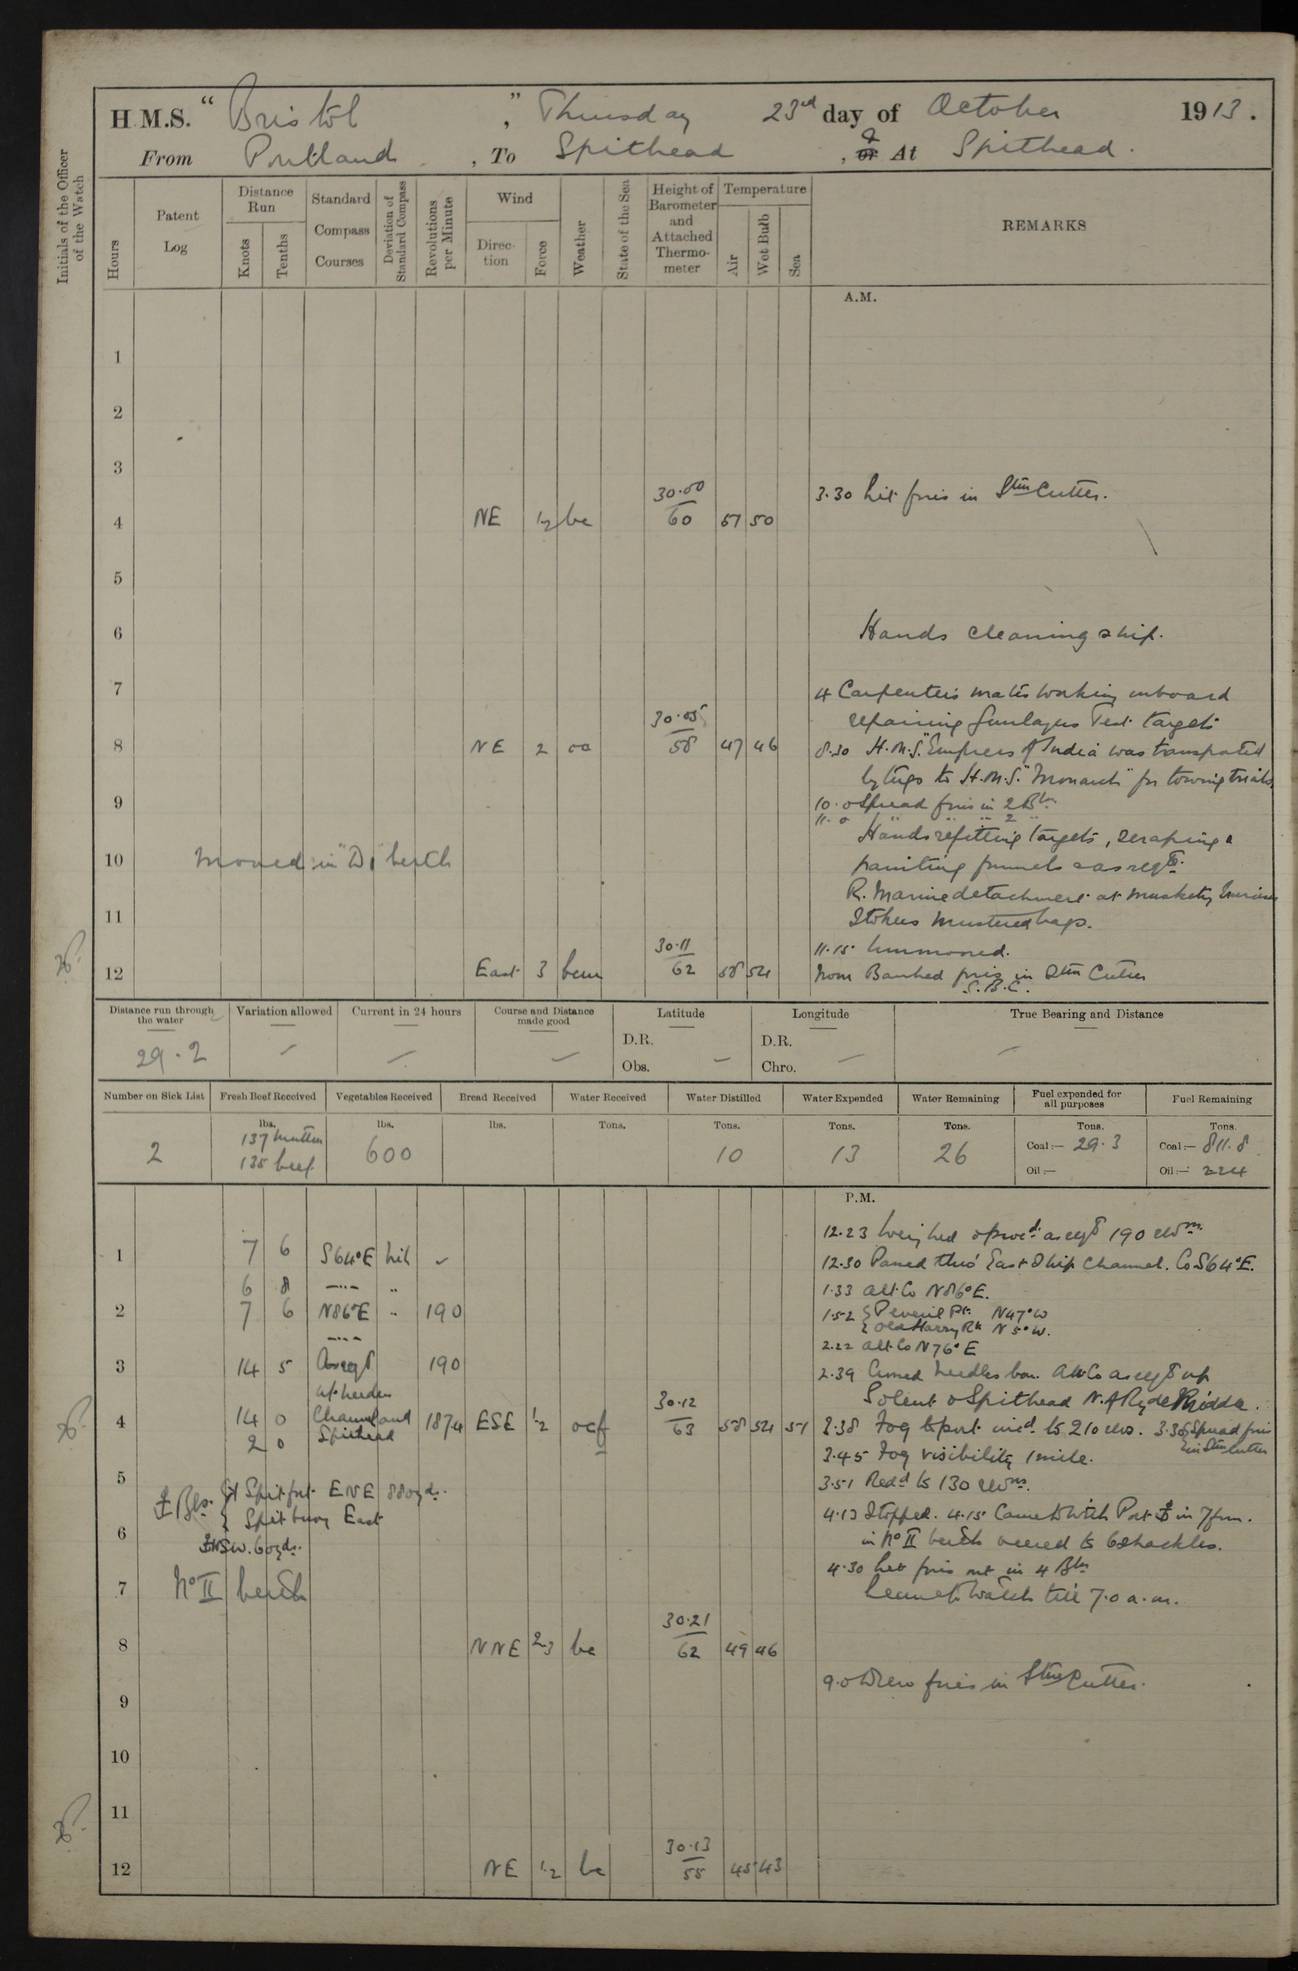 H.M.S. "Bristol", Thursday 23rd day of October 1913.
From Portland, To Spithead, & or At Spithead.
Initials of the Officer of the Watch
Hours
Patent Log
Distance Run
Knots
Tenths
Standard Compass Courses
Deviation of Standard Compass
Revolutions per Minute
Wind
Direction
Force
Weather
State of the Sea
Height of Barometer and Attached Thermometer
Temperature
Air
Wet Bulb
Sea
REMARKS
A.M.
1
2
3
3.30 Lit fires in Stm Cutter.
4 NE 1-2 bc 30.00 60 51 50
5
6 Hands cleaning ship.
7
4 Carpenters mates working onboard
repairing Gunlayers Test targets
8 NE 2 30.05 58 47 46
8.30 H.M.S. "Empress of India" was transported
by tugs to H.M.S. "Monarch" for towing trials.
9
10.0 Spread fires in 2 Blrs
11.0 " " " 2 "
Hands refitting targets, scraping &
10 Moored in "D1" berth
painting funnels & as reqd.
R. Marine detachment at Musketry Exercises
11 Stokers mustered bags.
11.15 Unmoored.
12 East 3 bcm 30.11 62 58 54
Noon Banked fires in Stm Cutter
S.B.C.
Distance run through the water
29.2
Variation allowed
Current in 24 hours
Course and Distance made good
Latitude
D.R.
Obs.
Longitude
D.R.
Chro.
True Bearing and Distance
Number on Sick List
2
Fresh Beef Received
lbs.
137 mutton
135 beef
Vegetables Received
lbs.
600
Bread Received
lbs.
Water Received
Tons.
Water Distilled
Tons.
10
Water Expended
Tons.
13
Water Remaining
Tons.
26
Fuel expended for all purposes
Tons.
Coal:— 29.3
Oil:—
Fuel Remaining
Tons.
Coal:— 811.8
Oil:— 224
P.M.
12.23 Weighed & procd as reqd 190 revns.
1 7 6 S64°E Nil
12.30 Passed thro' East Ship Channel. Co S64°E.
6 8 —"— "
1.33 Alt Co N86°E.
2 7 6 N86°E " 190
1.52 { Peveril Pt. N47°W
{ Old Harry Rk N5°W.
2.22 Alt Co N76°E
3 14 5 As reqd 190
2.39 Crossed Needles bar. Alt Co as reqd up
up Needles
Solent & Spithead N. of Ryde Middle.
4 14 0 Channel and 187.4 ESE 1-2 ocf 30.12 63 58 54 51
2 0 Spithead
3.38 Fog to port incd to 210 revs. 3.30 { Spread fires
{ in Stm Cutter
3.45 Fog visibility 1 mile.
5
3.51 Redd to 130 revns.
Bgs. { Spit fort ENE 880 yds.
{ Spit buoy East
4.13 Stopped. 4.15 Came to with Port in 7 fm.
6 WSW. 60 yds.
in No II berth veered to 6 shackles.
4.30 Let fires out in 4 Blrs
7 No II berth
Leave to Watch till 7.0 a.m.
8 NNE 2-3 bc 30.21 62 49 46
9.0 Drew fires in Stm Cutter.
9
10
11
12 NE 1-2 bc 30.13 55 45 43